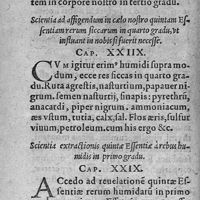 du corpore nostro in tertio gradu.
Scientia ad affigendum in cælo nostro quintam Es-
sentiam rerum siccarum in quarto gradu, vt
influant in nobis si fuerit necesse.
CAP. XXIIX.
CVM igitur erimꝰ humidi supra mo-
dum, ecce res siccas in quarto gra
du. Ruta agrestis, nasturtium, papauer ni-
grum. semen nasturtij, sinapis: pyrethrū,
anacardi, piper nigrum. ammoniacum,
æs vstum, tutia, calx, sal. Flos æris, sulfur
viuum, petroleum. cum his ergo &c.
Scientia extractionis quintæ Essentiæ à rebus hu-
midis in primo gradu.
CAP. XXIX.
ACcedo ad reuelationē quintæ Es-
sentiæ rerum humidarū in primo